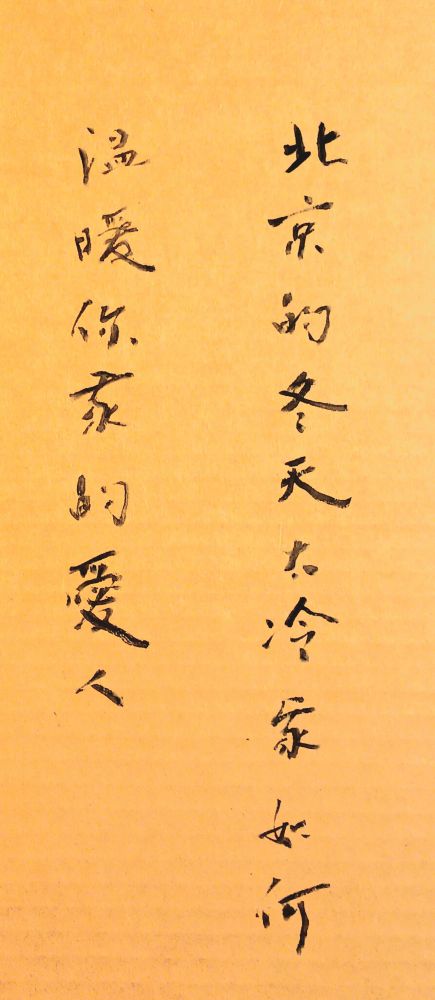 北京的冬天太冷我如何
温暖你我的愛人